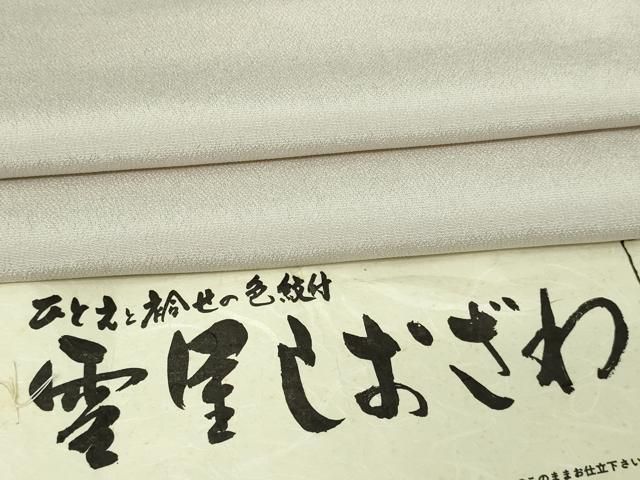 ひとえと袷せの色紋付
雪里しおざわ
このままお仕立下さい